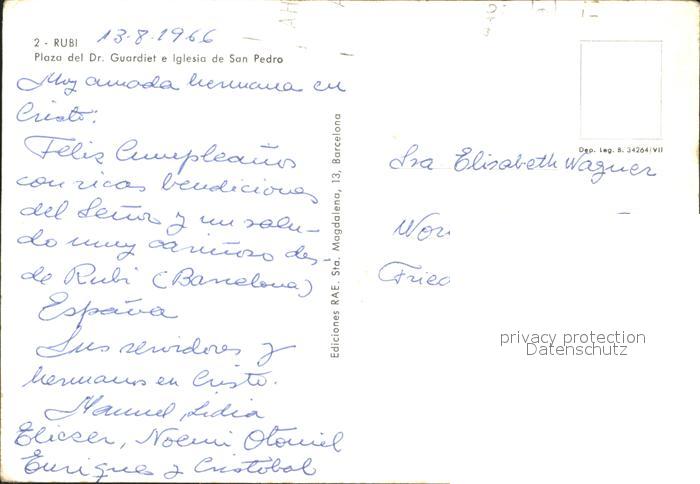 2 - RUBI 13-8-1966
Plaza del Dr. Guardiet e Iglesia de San Pedro
Muy amada hermana en
Cristo:
Feliz Cumpleaños
con ricas bendiciones
del Señor y un salu-
do muy cariñoso des-
de Rubi (Barcelona)
España
Sus servidores y
hermanos en Cristo.
Manuel, Lidia
Eliezer, Noemi Otoniel
Enrique y Cristobal
Ediciones RAE. Sta. Magdalena, 13, Barcelona
Dep. Leg. B. 34264/VII
Sra Elisabeth Wagner
Wor
Fried
privacy protection
Datenschutz